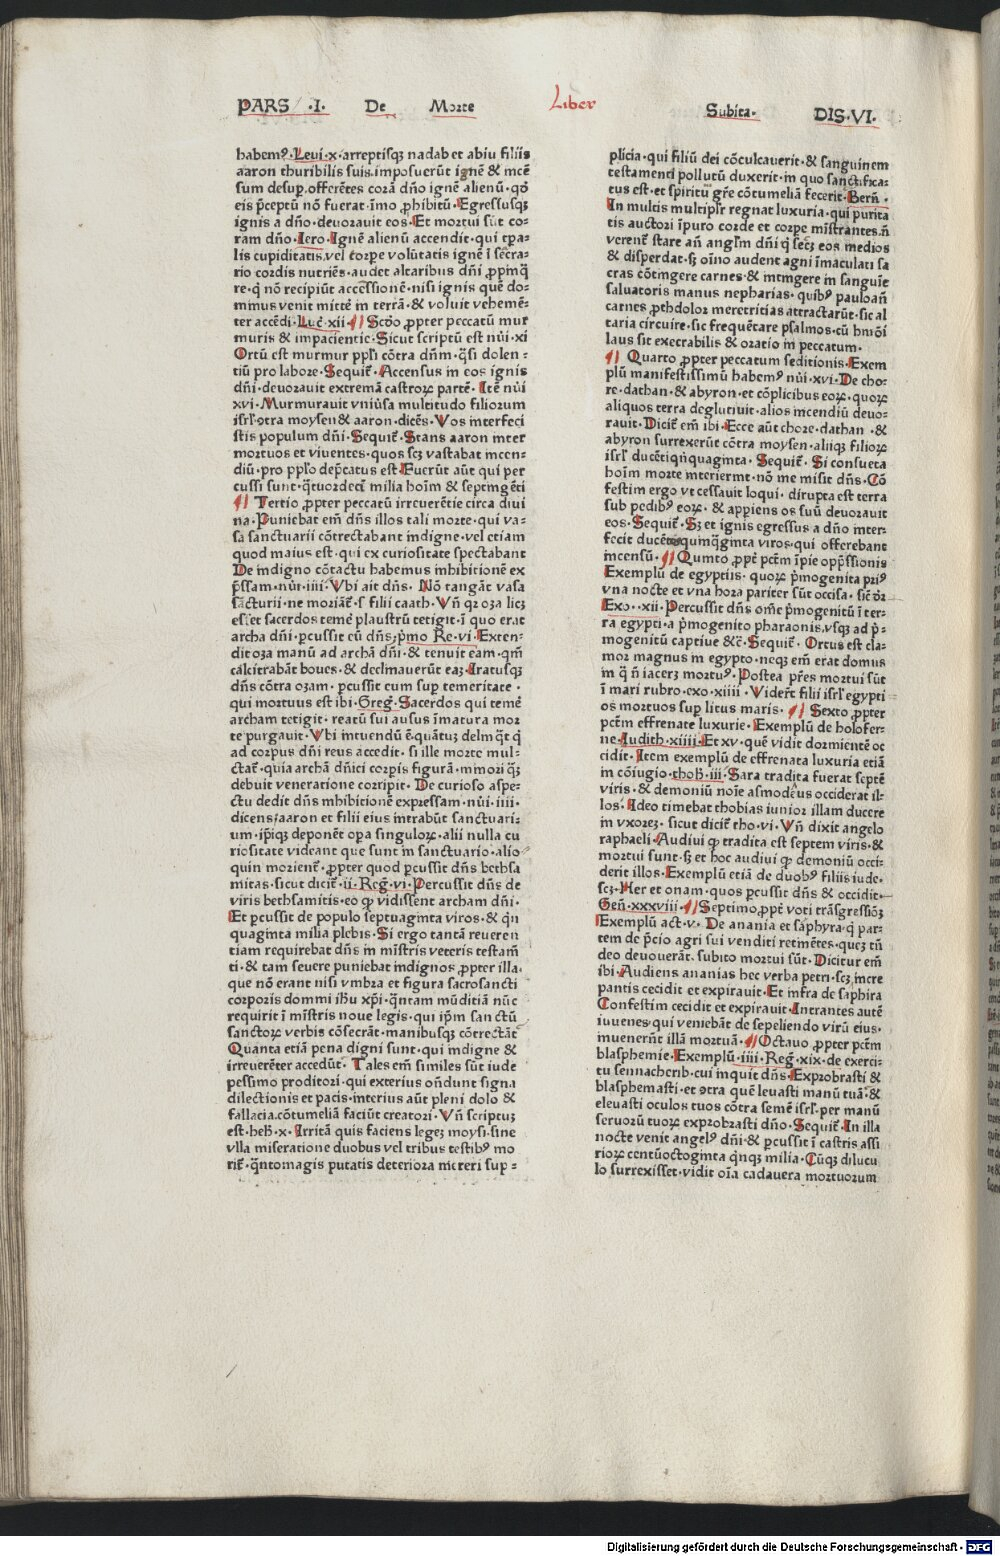 PARS .I. De Morte Liber Subita. DIS.VI.
habemꝰ. Leui.x. arreptisqꝫ nadab et abiu filiis
aaron thuribilis suis. imposuerūt ignē & incē
sum desup. offerētes corā dño ignē alienū. qđ
eis p̄ceptū nō fuerat. imo ꝓhibitū. Egressusqꝫ
ignis a dño. deuorauit eos. Et mortui sūt co-
ram dño. Iero. Ignē alienū accendit. qui tꝑa-
lis cupiditatis. vel torpe volūtatis ignē ī secra-
rio cordis nutriēs. audet altaribus dñi ꝓpinq̄
re. q̄ nō recipiūt accessionē. nisi ignis quē do-
minus venit mittē in terrā. & voluit vehemē-
ter accēdi. Luc̄. xii ¶ Scđo ꝓpter peccatū mur
muris & impacientie. Sicut scriptū est nūi. xi
Ortū est murmur ppl̄i cōtra dñm. q̄si dolen-
tiū pro labore. Sequit̄. Accensus in eos ignis
dñi. deuorauit extremā castroꝝ partē. Itē nūi
xvi. Murmurauit vniūsa multitudo filiorum
isrl̄. ꝯtra moysen & aaron. dicēs. Vos interfeci
stis populum dñi. Sequit̄. Stans aaron inter
mortuos et viuentes. quos scꝫ vastabat incen-
diū. pro ppl̄o dep̄catus est. Fuerūt aūt qui per
cussi sunt. q̄tuordeci milia hoīm & septingēti
¶ Tertio ꝓpter peccatū irreuerētie circa diui
na. Puniebat em̄ dñs illos tali morte. qui va-
sa sanctuarii cōtrectabant indigne. vel etiam
quod maius est. qui ex curiositate spectabant
De indigno cōtactu habemus inhibitionē ex
p̄ssam. nūi. iiii. Vbi ait dñs. Nō tangāt vasa
sācturii. ne moriāt̄. s filii caath. Vn̄ qꝛ oza licꝫ
esset sacerdos temē plaustrū tetigit. ī quo erat
archa dñi. ꝑcussit eū dñs. p̄mo Re. vi. Exten-
dit oza manū ad archā dñi. & tenuit eam. qm̄
calcitrabāt boues. & declinauerūt eaꝫ. Iratusqꝫ
dñs cōtra ozam. ꝑcussit eum sup temeritate.
qui mortuus est ibi. Greḡ. Sacerdos qui temē
archam tetigit. reatū sui ausus īmatura mor
te purgauit. Vbi intuendū ē. quātuꝫ delinq̄t q̄
ad corpus dñi reus accedit. si ille morte mul-
ctat̄. quia archā dñici corpis figurā. minori q̄ꝫ
debuit veneratione corripit. De curioso aspe-
ctu dedit dñs inhibitionē expressam. nūi. iiii.
dicens. aaron et filii eius intrabūt sanctuari-
um. ip̄iqꝫ deponēt oꝑa singuloꝝ. alii nulla cu
riositate videant que sunt in sanctuario. alio
quin morient̄. ꝓpter quod ꝑcussit dñs bethsa
mitas. sicut dicit̄. ii. Reg̅. vi. Percussit dñs de
viris bethsamitis. eo ꝙ vidissent archam dñi.
Et ꝑcussit de populo septuaginta viros. & q̄n
quaginta milia plebis. Si ergo tantā reueren
tiam requirebat dñs in mīstris veteris testam̄
ti. & tam seuere puniebat indignos ꝓpter illa.
que nō erant nisi vmbra et figura sacrosancti
corporis domini ihū xp̄i. q̄ntam mūditiā nūc
requirit ī mīstris noue legis. qui ip̄m sanctū
sanctoꝝ verbis cōsecrāt. manibusqꝫ cōtrectāt
Quanta etiā pena digni sunt. qui indigne &
irreuerēter accedūt. Tales em̄ similes sūt iude
pessimo proditori. qui exterius on̄dunt signa
dilectionis et pacis. interius aūt pleni dolo &
fallacia. cōtumeliā faciūt creatori. Vn̄ scriptuꝫ
est. heb̄. x. Irritā quis faciens legeꝫ moysi. sine
vlla miseratione duobus vel tribus testibꝰ mo
rit̄. q̄ntomagis putatis deteriora mereri sup-
plicia. qui filiū dei cōculcauerit. & sanguinem
testamenti pollutū duxerit. in quo sanctifica-
tus est. et spiritū gr̄e cōtumeliā fecerit. Bern̄.
In multis multiplr̄ regnat luxuria. qui purita
tis auctori īpuro corde et corpe mīstrantes. n̄
verent̄ stare an̄ angl̄m dñi. q̄ secꝫ eos medios
& disperdat. sꝫ oīno audent agni īmaculati sa
cras cōtingere carnes. & intingere in sanguīe
saluatoris manus nepharias. quibꝰ pauloan̄
carnes ꝓthdolor meretritias attractarūt. sic al
taria circuire. sic frequētare psalmos. cū hmōi
laus sit execrabilis & oratio in peccatum.
¶ Quarto ꝓpter peccatum seditionis. Exem
plū manifestissimū habemꝰ nūi. xvi. De cho-
re. dathan. & abyron. et cōplicibus eoꝝ. quoꝝ
aliquos terra deglutiuit. alios incendiū deuo-
rauit. Dicit̄ em̄ ibi. Ecce aūt chore. dathan. &
abyron surrexerūt cōtra moysen. aliiqꝫ filioꝝ
isrl̄ ducētiqn̄quaginta. Sequit̄. Si consueta
hoīm morte interierint. nō me misit dñs. Cō
festim ergo vt cessauit loqui. dirupta est terra
sub pedibꝰ eoꝝ. & appiens os suū deuorauit
eos. Sequit̄. Sꝫ et ignis egressus a dño inter-
fecit ducētosquinq̄ginta viros. qui offerebant
incensū. ¶ Quinto ꝓpt̄ pctm̄ īpie opp̄ssionis
Exemplū de egyptiis. quoꝝ p̄mogenita priꝰ
vna nocte et vna hora pariter sūt occisa. sic̄ dr̄
Exo. xii. Percussit dñs om̄e p̄mogenitū ī ter-
ra egypti. a p̄mogenito pharaonis. vsqꝫ ad p̄-
mogenitū captiue &c̄. Sequit̄. Ortus est cla-
mor magnus in egypto. neqꝫ em̄ erat domus
in q̄ n̄ iacerꝫ mortuꝰ. Postea p̄res mortui sūt
ī mari rubro. exo. xiiii. Viderūt filii isrl̄ egypti
os mortuos sup litus maris. ¶ Sexto ꝓpter
pctm̄ effrenate luxurie. Exemplū de holofer-
ne. Iudith. xiiii. Et xv. quē vidit dormientē oc
cidit. Item exemplū de effrenata luxuria etiā
in cōiugio. thob̄. iii. Sara tradita fuerat septē
viris. & demoniū noīe asmodeus occiderat il-
los. Ideo timebat thobias iunior illam ducere
in vxorēꝫ. sicut dicit̄ tho. vi. Vn̄ dixit angelo
raphaeli. Audiui ꝙ tradita est septem viris. &
mortui sunt. sꝫ et hoc audiui ꝙ demoniū occi
derit illos. Exemplū etiā de duobꝰ filiis iude.
scꝫ. Her et onam. quos ꝑcussit dñs & occidit.
Gen̄. xxxviii. ¶ Septimo. ꝓpt̄ voti trāsgressiōꝫ
Exemplū act. v. De anania et saphyra. q̄ par-
tem de p̄cio agri sui venditi retinētes. queꝫ tn̄
deo deuouerāt. subito mortui sūt. Dicitur em̄
ibi. Audiens ananias hec verba petri. scꝫ incre
pantis cecidit et expirauit. Et infra de saphira
Confestim cecidit et expirauit. Intrantes autē
iuuenes. qui veniebāt de sepeliendo virū eius.
inuenerūt illā mortuā. ¶ Octauo ꝓpter pctm̄
blasphemie. Exemplū. iiii. Reg̅. xix. de exerci-
tu sennacherib. cui inquit dñs. Exprobrasti &
blasphemasti. et ꝯtra quē leuasti manū tuā. &
eleuasti oculos tuos cōtra semē isrl̄. per manū
seruorū tuoꝝ exprobrasti dño. Sequit̄. In illa
nocte venit angelꝰ dñi. & ꝑcussit ī castris assi
rioꝝ centūoctoginta q̄nqꝫ milia. Cūqꝫ dilucu
lo surrexisset. vidit oīa cadauera mortuorum
Digitalisierung gefördert durch die Deutsche Forschungsgemeinschaft - DFG